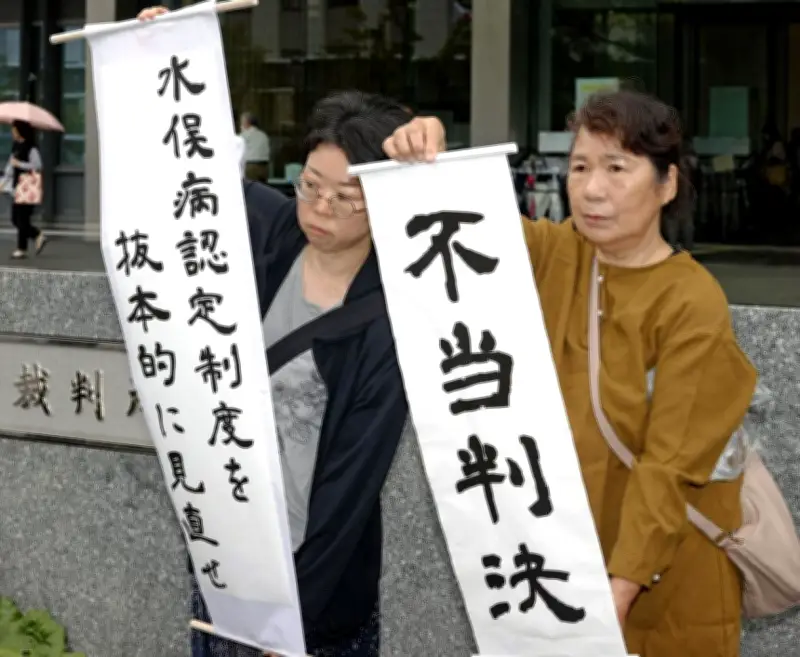 水俣病認定制度を
抜本的に見直せ
不当判決
裁判